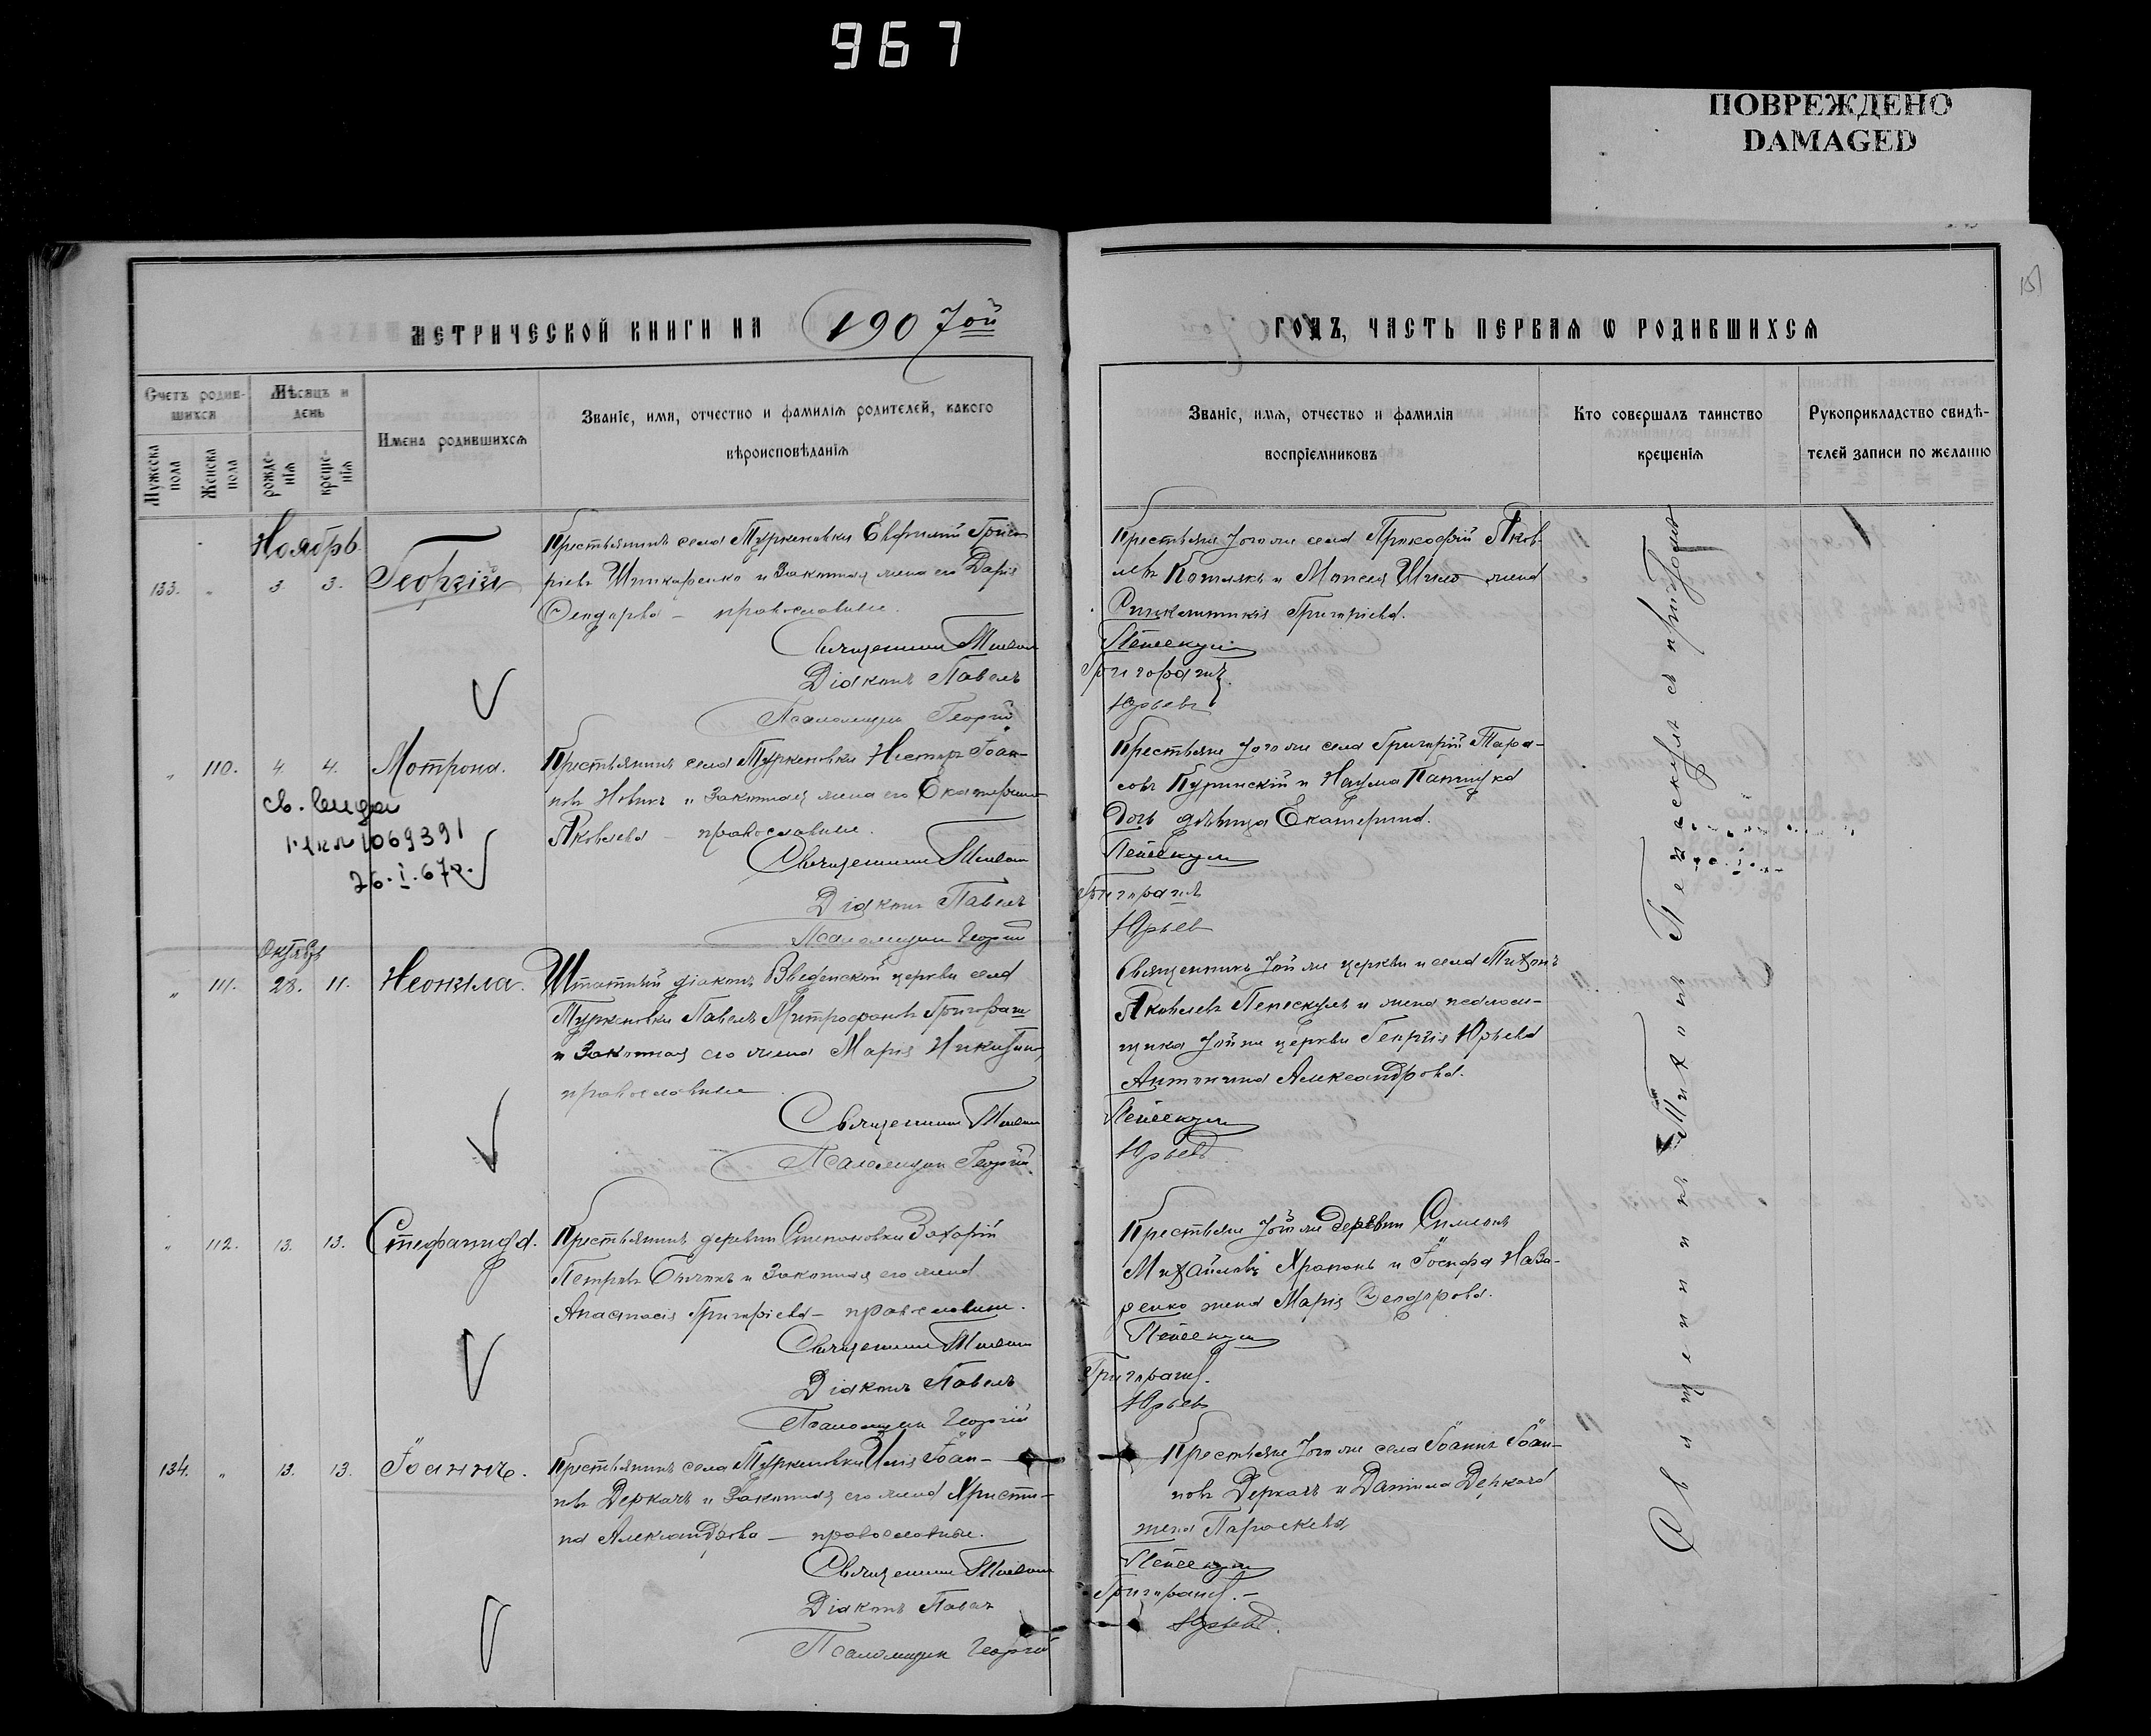 967
ПОВРЕЖДЕНО
DAMAGED
151
МЕТРИЧЕСКОЙ КНИГИ НА 1907ой ГОДЪ, ЧАСТЬ ПЕРВАЯ Ѡ РОДИВШИХСЯ
Счетъ родив-
шихся
Мужеска
пола
Женска
пола
Мѣсяцъ и
день
рожде-
нія
креще-
нія
Имена родившихся
Званіе, имя, отчество и фамилія родителей, какого
вѣроисповѣданія
Званіе, имя, отчество и фамилія
воспріємниковъ
Кто совершалъ таинство
крещенія
Рукоприкладство свидѣ-
телей записи по желанію
Ноябрь
133. " 3. 3. Георгій
Крестьянинъ села Туркеновки Евфимій Григо-
ріевъ Шинкаренко и законная жена его Дарія
Ѳеодорова — православные.
Священникъ Тихонъ
Діаконъ Павелъ
Псаломщикъ Георгій
Крестьяне того же села Прокофій Яков-
левъ Котлякъ и Моисея Шило жена
Синклитикія Григоріева.
Пенескулъ
Григорашъ
Юрьевъ
" 110. 4. 4. Мотрона.
св. видан
26.I.67р.
Крестьянинъ села Туркеновки Несторъ Іоан-
новъ Новикъ и законная жена его Екатерина
Яковлева — православные.
Священникъ Тихонъ
Діаконъ Павелъ
Псаломщикъ Георгій
Крестьяне того же села Григорій Тара-
совъ Куринскій и Наума
дочь дѣвица Екатерина.
Пенескулъ
Григорашъ
Юрьев
Октябрь
" 111. 28. 11. Неонила.
Штатный діаконъ Введенской церкви села
Туркеновки Павелъ Митрофановъ Григорашъ
и законная его жена Марія Никитина,
православные
Священникъ Тихонъ
Псаломщикъ Георгій
Священникъ той же церкви и села Тихонъ
Яковлевъ Пенескулъ и жена псалом-
щика той же церкви Георгія Юрьева
Антонина Александрова.
Пенескулъ
Юрьевъ
" 112. 13. 13. Стефанида.
Крестьянинъ деревни Степановки Захарій
Петровъ Бычокъ и законная его жена
Анастасія Григоріева — православные.
Священникъ Тихонъ
Діаконъ Павелъ
Псаломщикъ Георгій
Крестьяне той же деревни Симеонъ
Михайловъ Храпонъ и Іосифа Наза-
ренко жена Марія Ѳеодорова.
Пенескулъ
Григорашъ.
Юрьевъ
134. " 13. 13. Іоаннъ.
Крестьянинъ села Туркеновки Илія Іоан-
новъ Деркачъ и законная его жена Христи-
на Александрова — православные.
Священникъ Тихонъ
Діаконъ Павелъ
Псаломщикъ Георгій
Крестьяне того же села Іоаннъ Іоан-
новъ Деркачъ и Даніила Деркача
жена Параскева,
Пенескулъ
Григорашъ.
Юрьевъ.
Священникъ Тихонъ Пенескулъ съ причтомъ